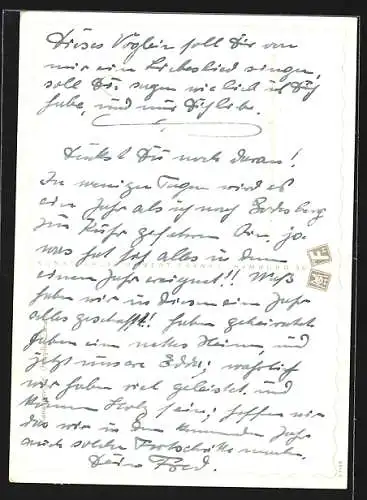 Dieses Vöglein soll Dir von
mir ein Liebeslied singen,
soll Dir sagen wie lieb ich Dich
habe, und nur Dich liebe.
Denkst Du noch daran!
In wenigen Tagen wird es
ein Jahr als ich nach Godesberg
zur gefahren bin, ja
was hat sich alles in dem
einem Jahr ereignet!! Was
haben wir in diesem ein Jahr
alles geschafft! haben geheiratet
haben ein nettes Heim, und
jetzt unsere Edda; wahrlich
wir haben viel geleistet und
können stolz sein; hoffen wir
das wir in dem kommenden Jahr
auch solche Fortschritte machen.
Dein Fred.